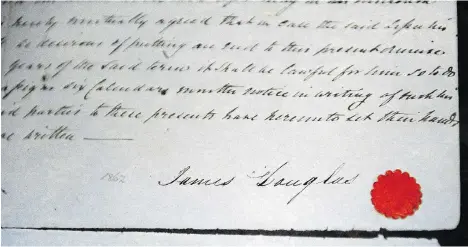 hereby mutually agreed that in case the said Lessee his
is desirous of putting an end to this present demise
years of the said term it shall be lawful for him so to do
six Calendar months notice in writing of such his
parties to these presents have hereunto set their hands
written
1862
James Douglas